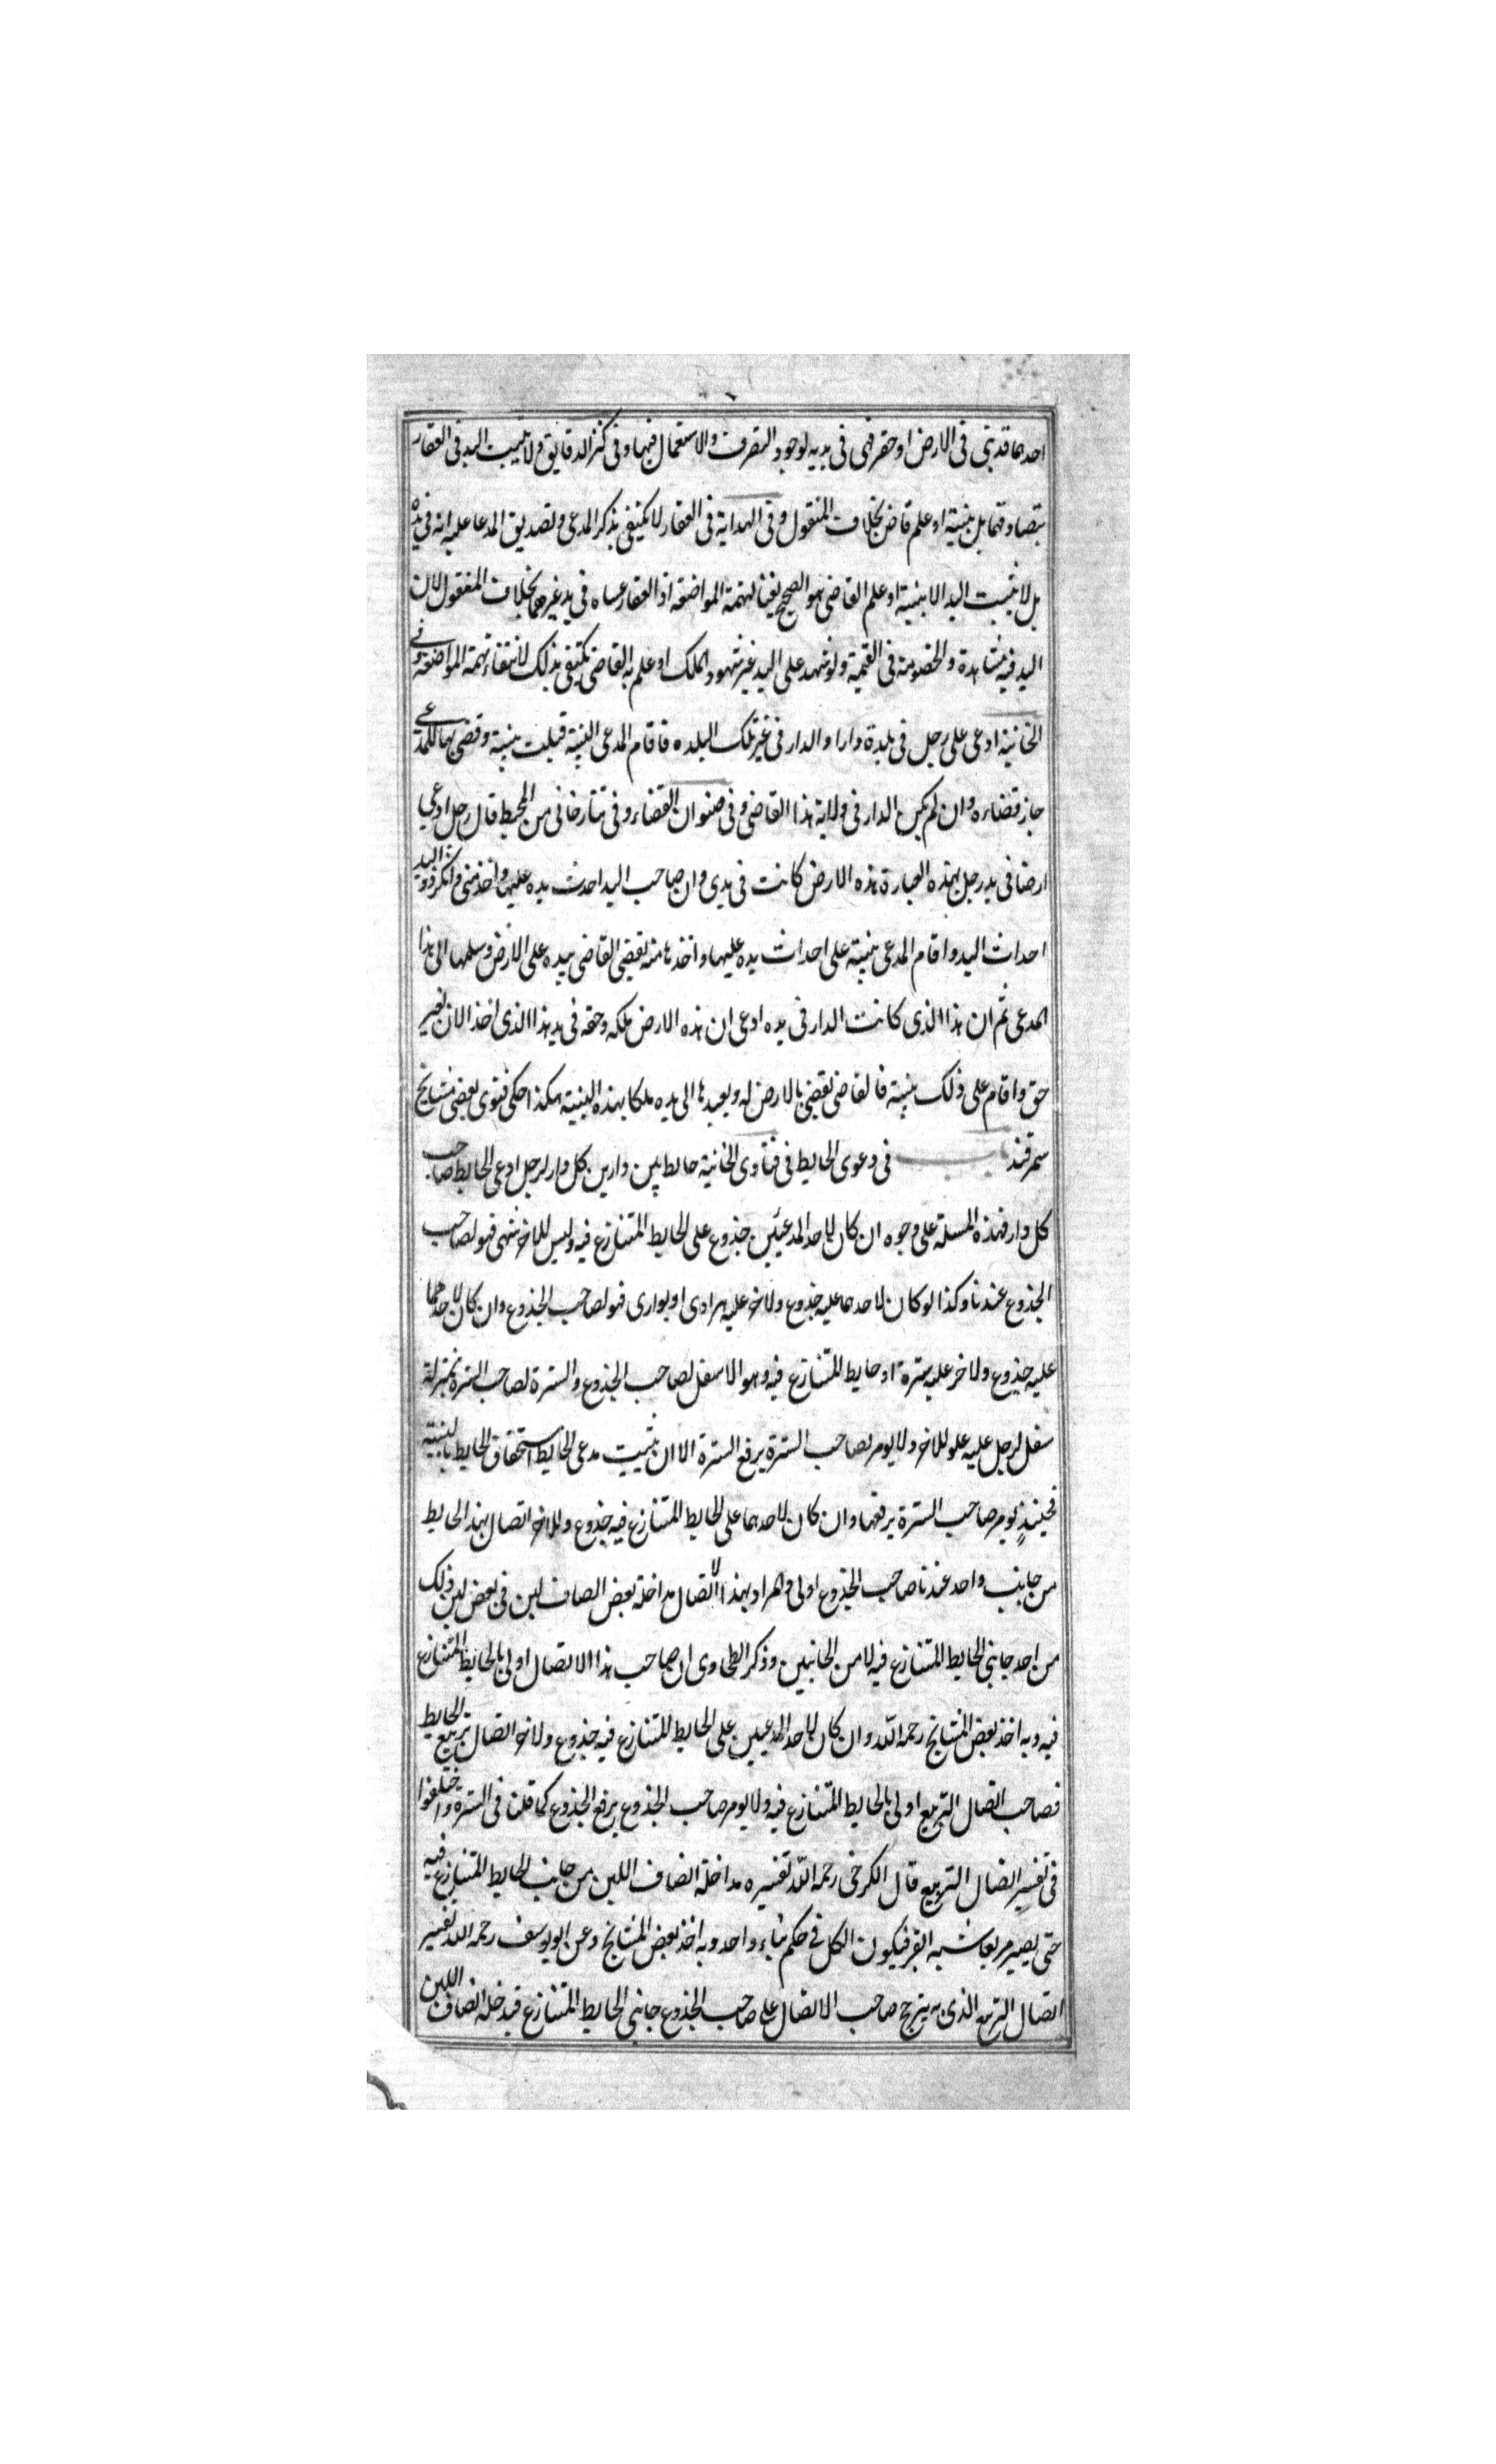 احدهما قد بنى فى الارض او حفر فهى فى يديه لوجود التصرف والاستعمال فيها وفى كنز الدقايق ولا تثبت اليد فى العقار
بتصادقهما بل ببينة او علم قاض بخلاف المنقول وفى الهداية فى العقار لا يكتفى بذكر المدعى وتصديق المدعا عليه انه فى يده
بل لا تثبت اليد الا ببينة او علم القاضى هو الصحيح نفيا لتهمة المواضعة اذ العقار عساه فى يد غيرهما بخلاف المنقول لان
اليد فيه مشاهدة والخصومة فى القيمة ولو شهد على اليد غير شهود الملك او علم به القاضى يكتفى بذلك لانتفاء تهمة المواضعة وفى
الخانية ادعى على رجل فى بلدة دارا والدار فى غير تلك البلده فاقام المدعى البينة قبلت بينة وقضى بها للمدعى
جاز قضاءه وان لم يكن الدار فى ولاية هذا القاضى وفى صنوان القضاء وفى تتارخانى من المحيط قال رجل ادعى
ارضا فى يد رجل بهذه العبارة هذه الارض كانت فى يدى وان صاحب اليد احدث يده عليها واخذ منى وانكر ذو اليد
احداث اليد واقام المدعى بينة على احداث يده عليها واخذها منه يقضى القاضى بيده على الارض وسلمها الى هذا
المدعى ثم ان هذا الذى كانت الدار فى يده ادعى ان هذه الارض ملكه وحقه فى يد هذا الذى اخذ الان بغير
حق واقام على ذلك بينة فالقاضى يقضى بالارض له ويعيدها الى يده ملكا بهذه البينة هكذا حكى فتوى بعض مشايخ
سمرقند باب فى دعوى الحايط فى فتاوى الخانية حايط بين دارين كل دار لرجل ادعى الحايط صاحب
كل دار فهذه المسئلة على وجوه ان كان لاحد المدعيين جذوع على الحايط المتنازع فيه وليس للاخر شئ فهو لصاحب
الجذوع عندنا وكذا لو كان لاحدهما عليه جذوع ولاخر عليه هرادى او بوارى فهو لصاحب الجذوع وان كان لاحدهما
عليه جذوع ولاخر عليه سترة او حايط المتنازع فيه وهو الاسفل لصاحب الجذوع والسترة لصاحب السترة بمنزلة
سفل لرجل عليه علو للاخر ولا يومر لصاحب السترة برفع السترة الا ان يثبت مدعى الحايط استحقاق الحايط بالبينة
فحينئذ يومر صاحب السترة برفعها وان كان لاحدهما على الحايط المتنازع فيه جذوع وللاخر اتصال بهذا الحايط
من جانب واحد عندنا صاحب الجذوع اولى والمراد بهذا الاتصال مداخلة بعض انصاف لبن فى بعض لبن ذلك
من احد جانبى الحايط المتنازع فيه لا من الجانبين وذكر الطحاوى ان صاحب هذا الاتصال اولى بالحايط المتنازع
فيه وبه اخذ بعض المشايخ رحمه الله وان كان لاحد المدعيين على الحايط المتنازع فيه جذوع ولاخر اتصال تربيع الحايط
فصاحب اتصال التربيع اولى بالحايط المتنازع فيه ولا يومر صاحب الجذوع برفع الجذوع كما قلنا فى السترة واختلفوا
فى تفسير اتصال التربيع قال الكرخى رحمه الله تفسيره مداخلة انصاف اللبن من جانب الحايط المتنازع فيه
حتى يصير مربعا شبه القبر فيكون الكل فى حكم بناء واحد وبه اخذ بعض المشايخ وعن ابو يوسف رحمه الله تفسير
اتصال التربيع الذى به يترجح صاحب الاتصال على صاحب الجذوع جانبى الحايط المتنازع فيدخله انصاف اللبن